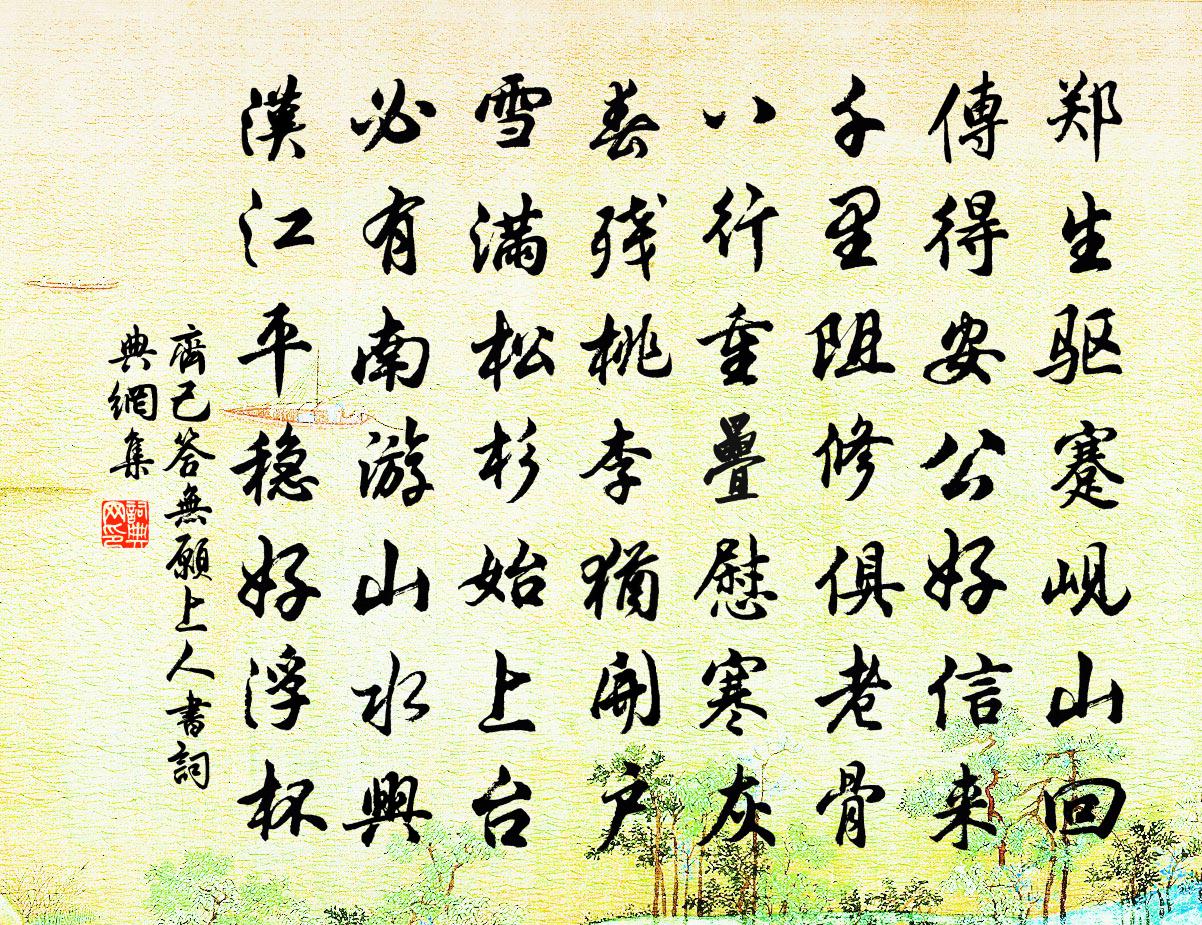 郑生驱蹇岘山回
傳得安公好信来
千里阻修俱老骨
八行重疊慰寒灰
春残桃李犹開户
雪满松杉始上台
必有南游山水興
漢江平稳好浮杯
齊己答無願上人書詞
典網集
詞典
网印